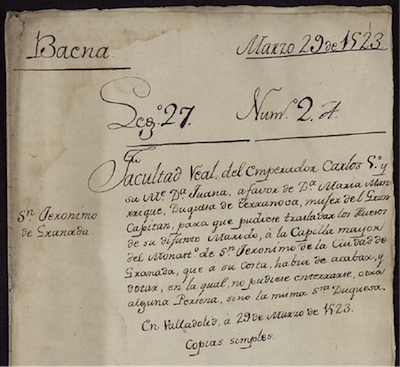 Baena.
Marzo 29 de 1523
Leg.º 27. Num.º 2. A.
Facultad Real, del Emperador Carlos 5.º y
su M.e D.a Juana, a favor de D.a Maria Man-
rrique, Duquesa de Terranova, mujer del Gran
Capitan, para que pudiese trasladar los Huesos
de su difunto Marido, à la Capilla mayor
del Monast.º de S.n Jeronimo de la Ciudad de
Granada, que a su costa, habia de acabar, y
dotar, en la qual, no pudiese enterrarse, otra
alguna Persona, sino la misma S.ra Duquesa.
S.n Jeronimo
de Granada.
En Valladolid, à 29 de Marzo de 1523.
Copias simples.